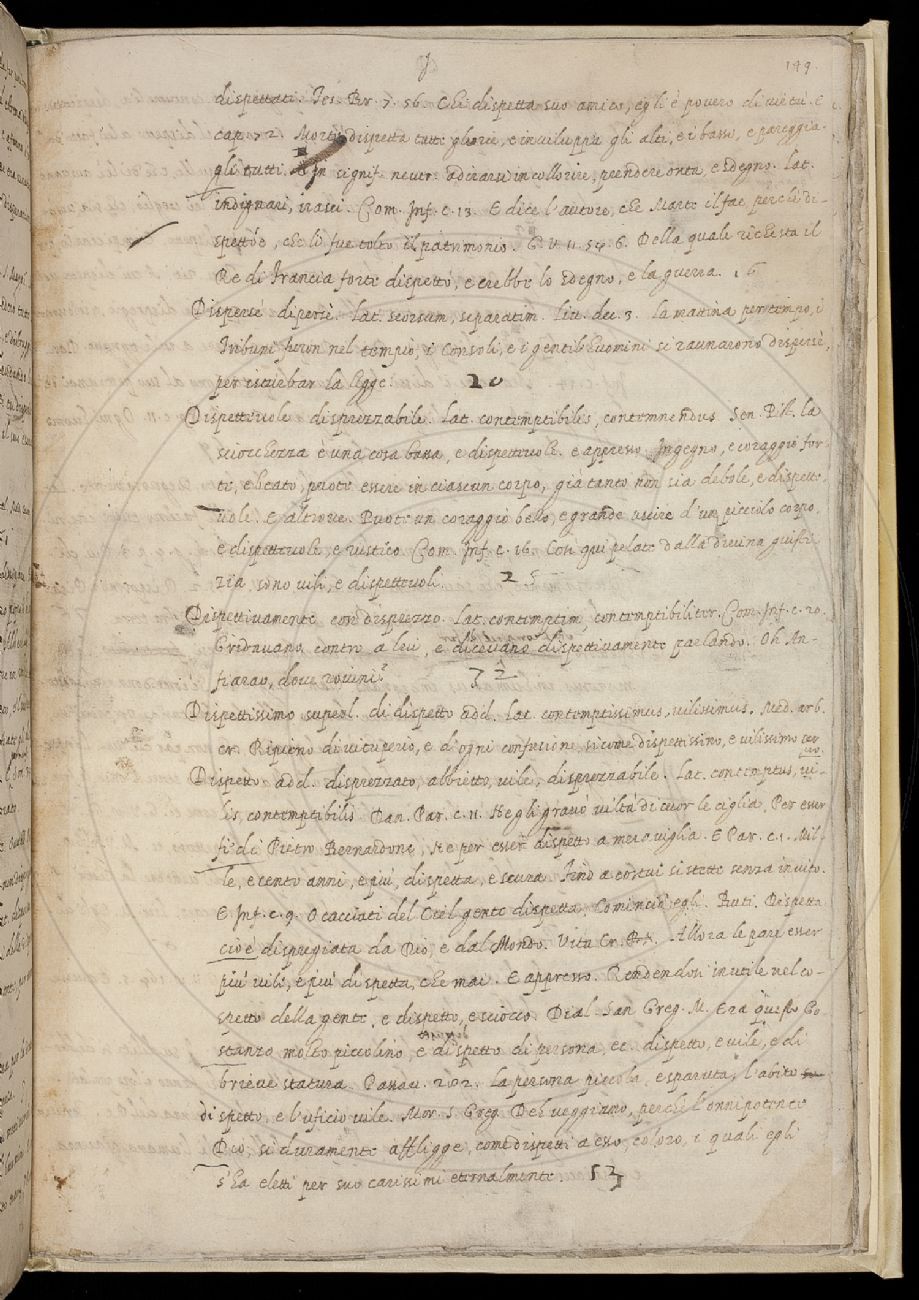 D
149.
dispettati. Tes. Br. 7. 56. Chi dispetta suo amico, egli è povero di virtù. E
cap. 72. Morte dispetta tutte glorie, e inviluppa gli alti, e i bassi, e pareggia
gli tutti. in signif. neutr. adirarsi incollorire, prendere onta, e sdegno. Lat.
indignari, irasci. Com. Inf. c. 13. E dice l'autore, che Marte il fae, perchè di-
spettóe, che lo fue tolto il patrimonio. G. V. 11. 54. 6. Della quale richiesta il
Re di Francia forte dispettò, e crebbe lo sdegno, e la guerra. 16
Dispersé di persè. Lat. seorsum, separatim. Liv. dec. 3. la mattina per tempo, i
Tribuni furon nel tempio, i Consoli, e i gentili huomini si raunarono dispersè,
per istuiebar la legge. 20
Dispettevole disprezzabile. Lat. contemptibilis, contemnendus Sen. Pist. la
sciocchezza è una cosa bassa, e dispettevole. e appresso. Ingegno, e coraggio for-
te, e beato, puote essere in ciascun corpo, già tanto non sia debole, e dispett-
evole. E altrove. Puote un coraggio bello, e grande uscire d'un picciolo corpo,
e dispettevole, e rustico. Com. Inf. c. 16. Così qui pelati dalla divina giusti-
zia sono vili, e dispettevoli. 25
Dispettivamente con disprezzo. Lat. contemptim, contemptibiliter. Com. Inf. c. 20.
Gridavano contro a lui, e dicevano dispettivamente parlando. Oh An-
fiarao, dove rovini?
Dispettissimo superl. di dispetto add. Lat. contemptissimus, vilissimus. Med. arb.
cr. Ripieno di vituperio, e d'ogni confusione, sicome dispettissimo, e vilissimo ser
vo.
Dispetto. add. disprezzato, abbietto, vile, disprezzabile. Lat. contemptus, vi-
lis, contemptibilis. Dan. Par. c. 11. Ne gli gravò viltà di cuor le ciglia, Per esser
fi' di Pietro Bernardone, Ne per esser dispetto a meraviglia. E Par. c. 1. Mil-
le, e cento anni, e più, dispetta, e scura Fino a costui si stette senza invito.
E Inf. c. 9. O cacciati del Ciel gente dispetta, Cominciò egli. But. Dispetta
cioè dispregiata da Dio, e dal Mondo. Vita Cr. Allora le pare esser
più vile, e più dispetta, che mai. E appresso. Rendendosi inutile nel co-
spetto della gente, e dispetto, e sciocco. Dial. San Greg. M. Era questo Co-
stanzo molto piccolino, e dispetto di persona, ec. dispetto, e vile, e di
brieve statura. Passav. 202. la persona piccola, e sparuta, l'abito
dispetto, e l'uficio vile. Mor. S. Greg. Deh veggiamo, perchè l'onnipotente
Dio, si duramente affligge, come dispetti a esso, coloro, i quali egli
s'ha eletti per suo carissimi eternalmente. 53